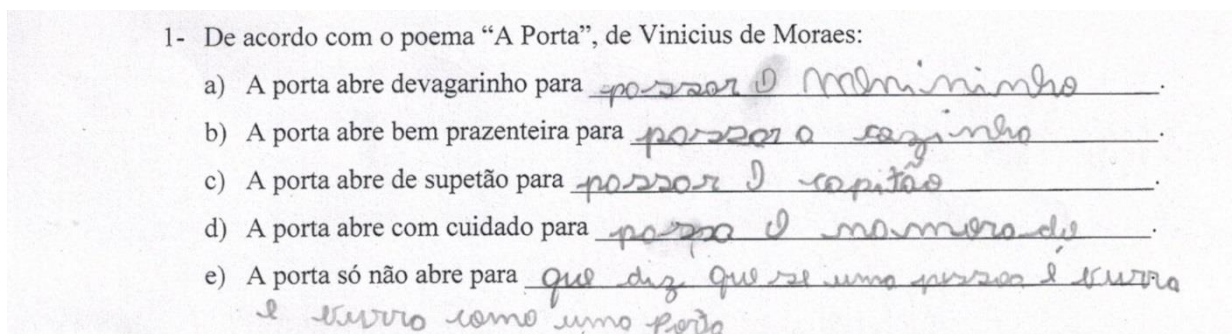 1- De acordo com o poema “A Porta”, de Vinicius de Moraes:
a) A porta abre devagarinho para passar o menininho.
b) A porta abre bem prazenteira para passar o cozinho.
c) A porta abre de supetão para passar o capitão.
d) A porta abre com cuidado para passa o namorado.
e) A porta só não abre para que diz que se uma pessoa é burra
e burro como uma porta